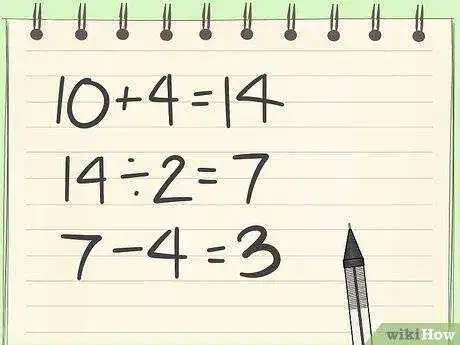 10+4=14
14÷2=7
7-4=3
wikiHow